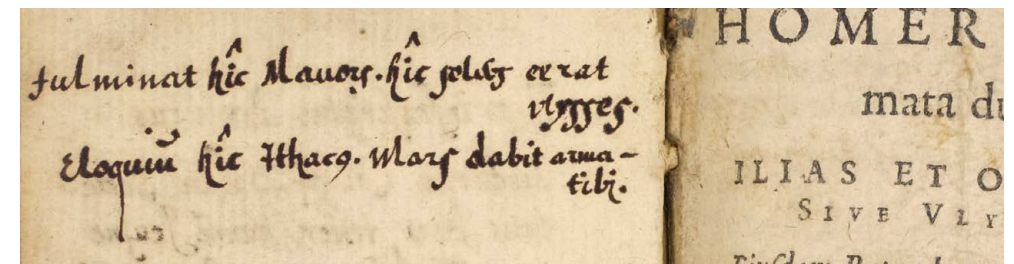 fulminat hîc Mavors. hîc solers errat
Vlysses.
Eloquiũ hîc Ithacꝰ. Mars dabit arma-
tibi.
HOMER
mata du
ILIAS ET O
SIVE VLY